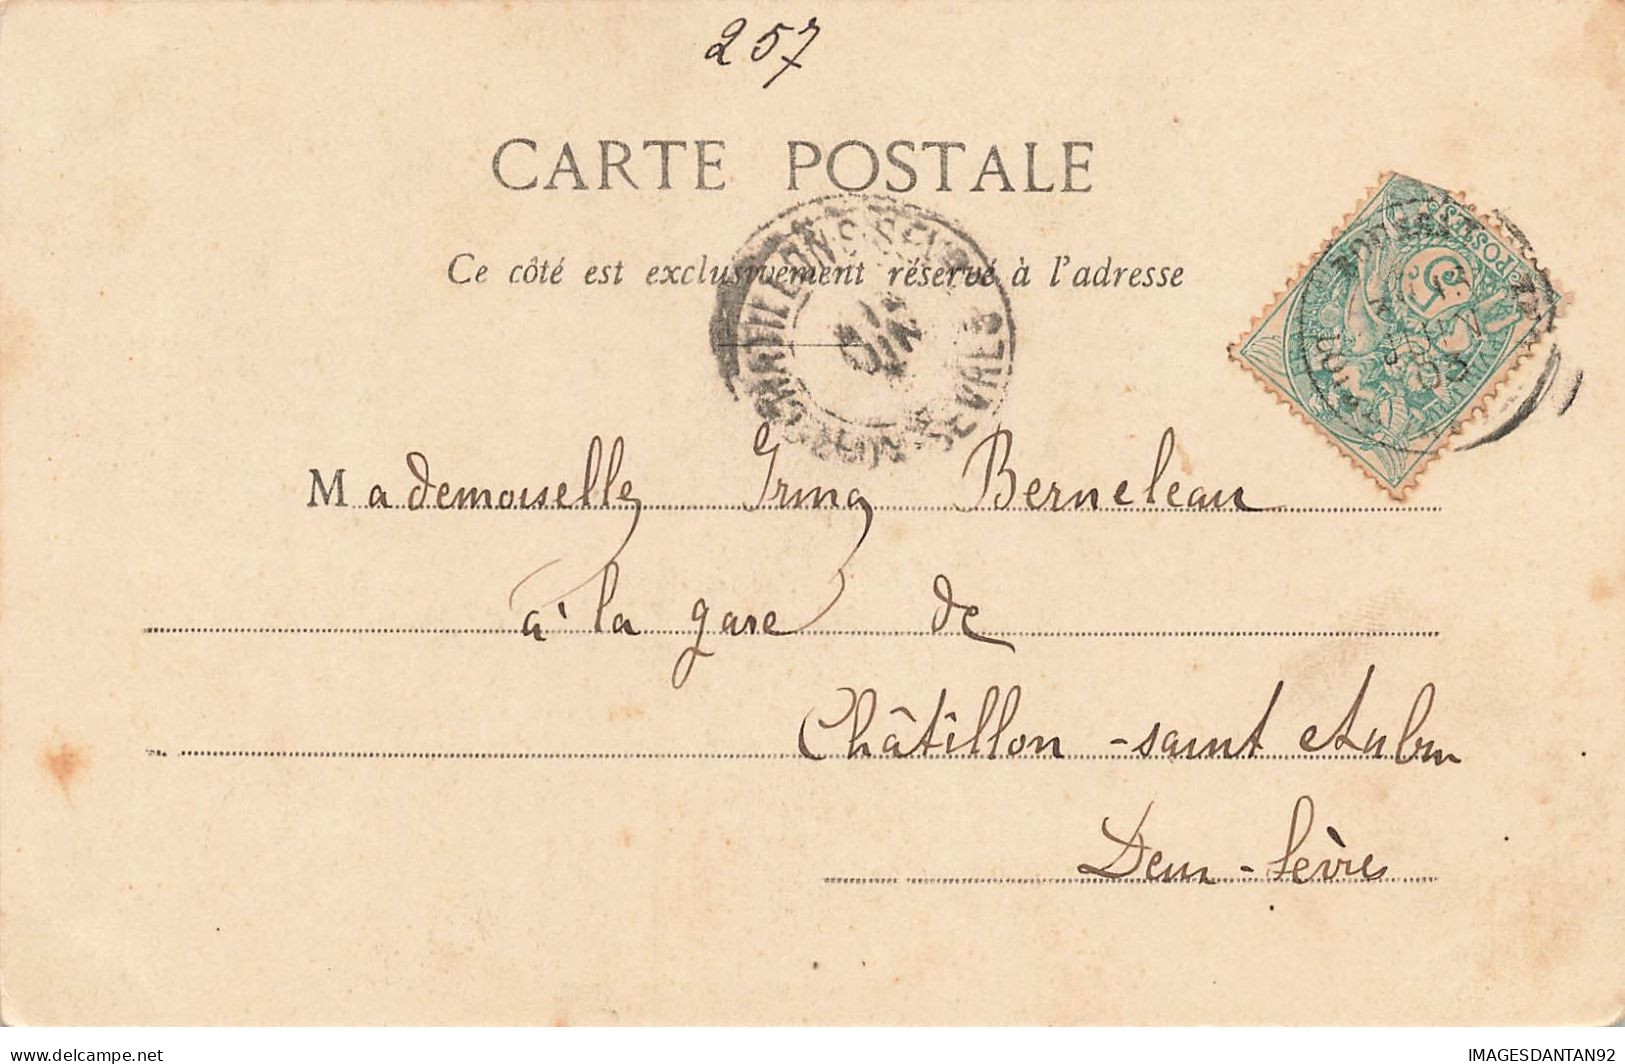 257
CARTE POSTALE
Ce côté est exclusivement réservé à l'adresse
POSTES
CHATILLON S SEVRE
SEVRES
Mademoiselle Irma Berneleau
à la gare de
Châtillon-saint Aubin
Deux-Sèvres
IMAGESDANTAN92
delcampe.net